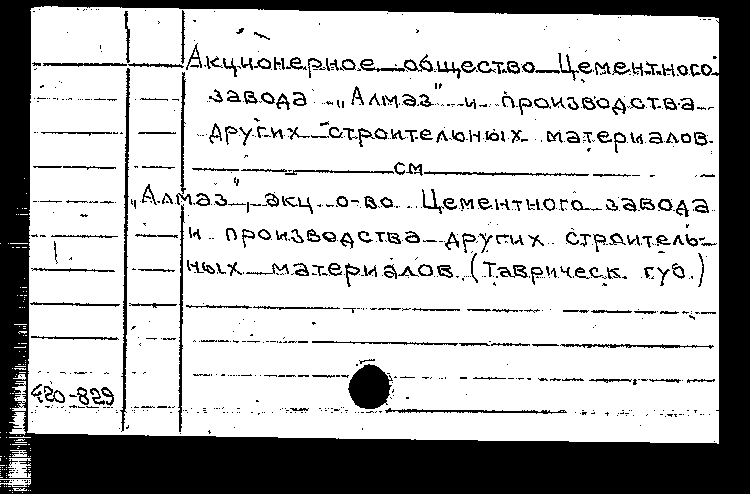 Акционерное общество Цементного
завода „Алмаз" и производства
других строительных материалов
см
„Алмаз", акц о-во Цементного завода
и производства других строитель-
ных материалов (Таврическ. губ.)
420-829